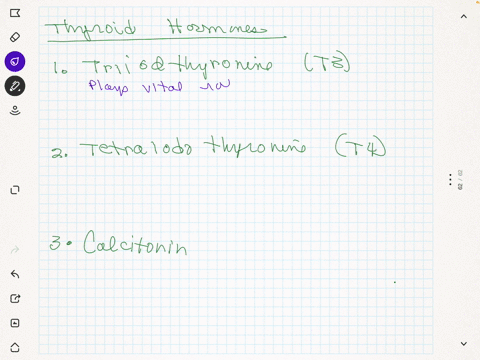 Thyroid Hormones
1. Triiodthyronine (T3)
Plays vital
2. Tetraiodo thyronine (T4)
3. Calcitonin